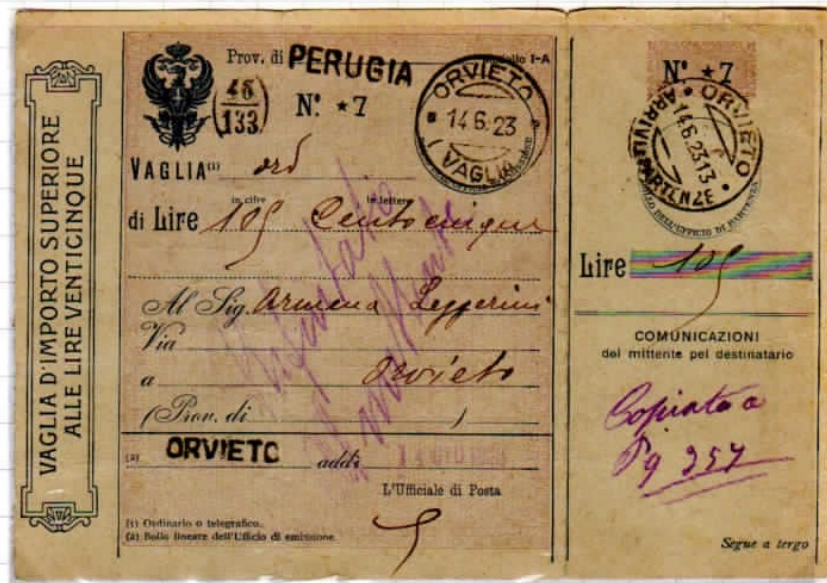 VAGLIA D'IMPORTO SUPERIORE
ALLE LIRE VENTICINQUE
Prov. di PERUGIA
I-A
46
133
N.º *7
ORVIETO
14.6.23
VAGLIA
VAGLIA(1) ord
in cifre in lettere
di Lire 105 Centocinque
Al Sig. Armena Leggerini
Via
a Orvieto
(Prov. di )
Rifiutato
(2) ORVIETO addì
L'Ufficiale di Posta
(1) Ordinario o telegrafico.
(2) Bollo lineare dell'Ufficio di emissione.
N.º *7
ORVIETO
14.6.23.13
ARRIVI PARTENZE
BOLLO DELL'UFFICIO DI PARTENZA
Lire 105
COMUNICAZIONI
del mittente pel destinatario
Copiato a
Pg 257
Segue a tergo